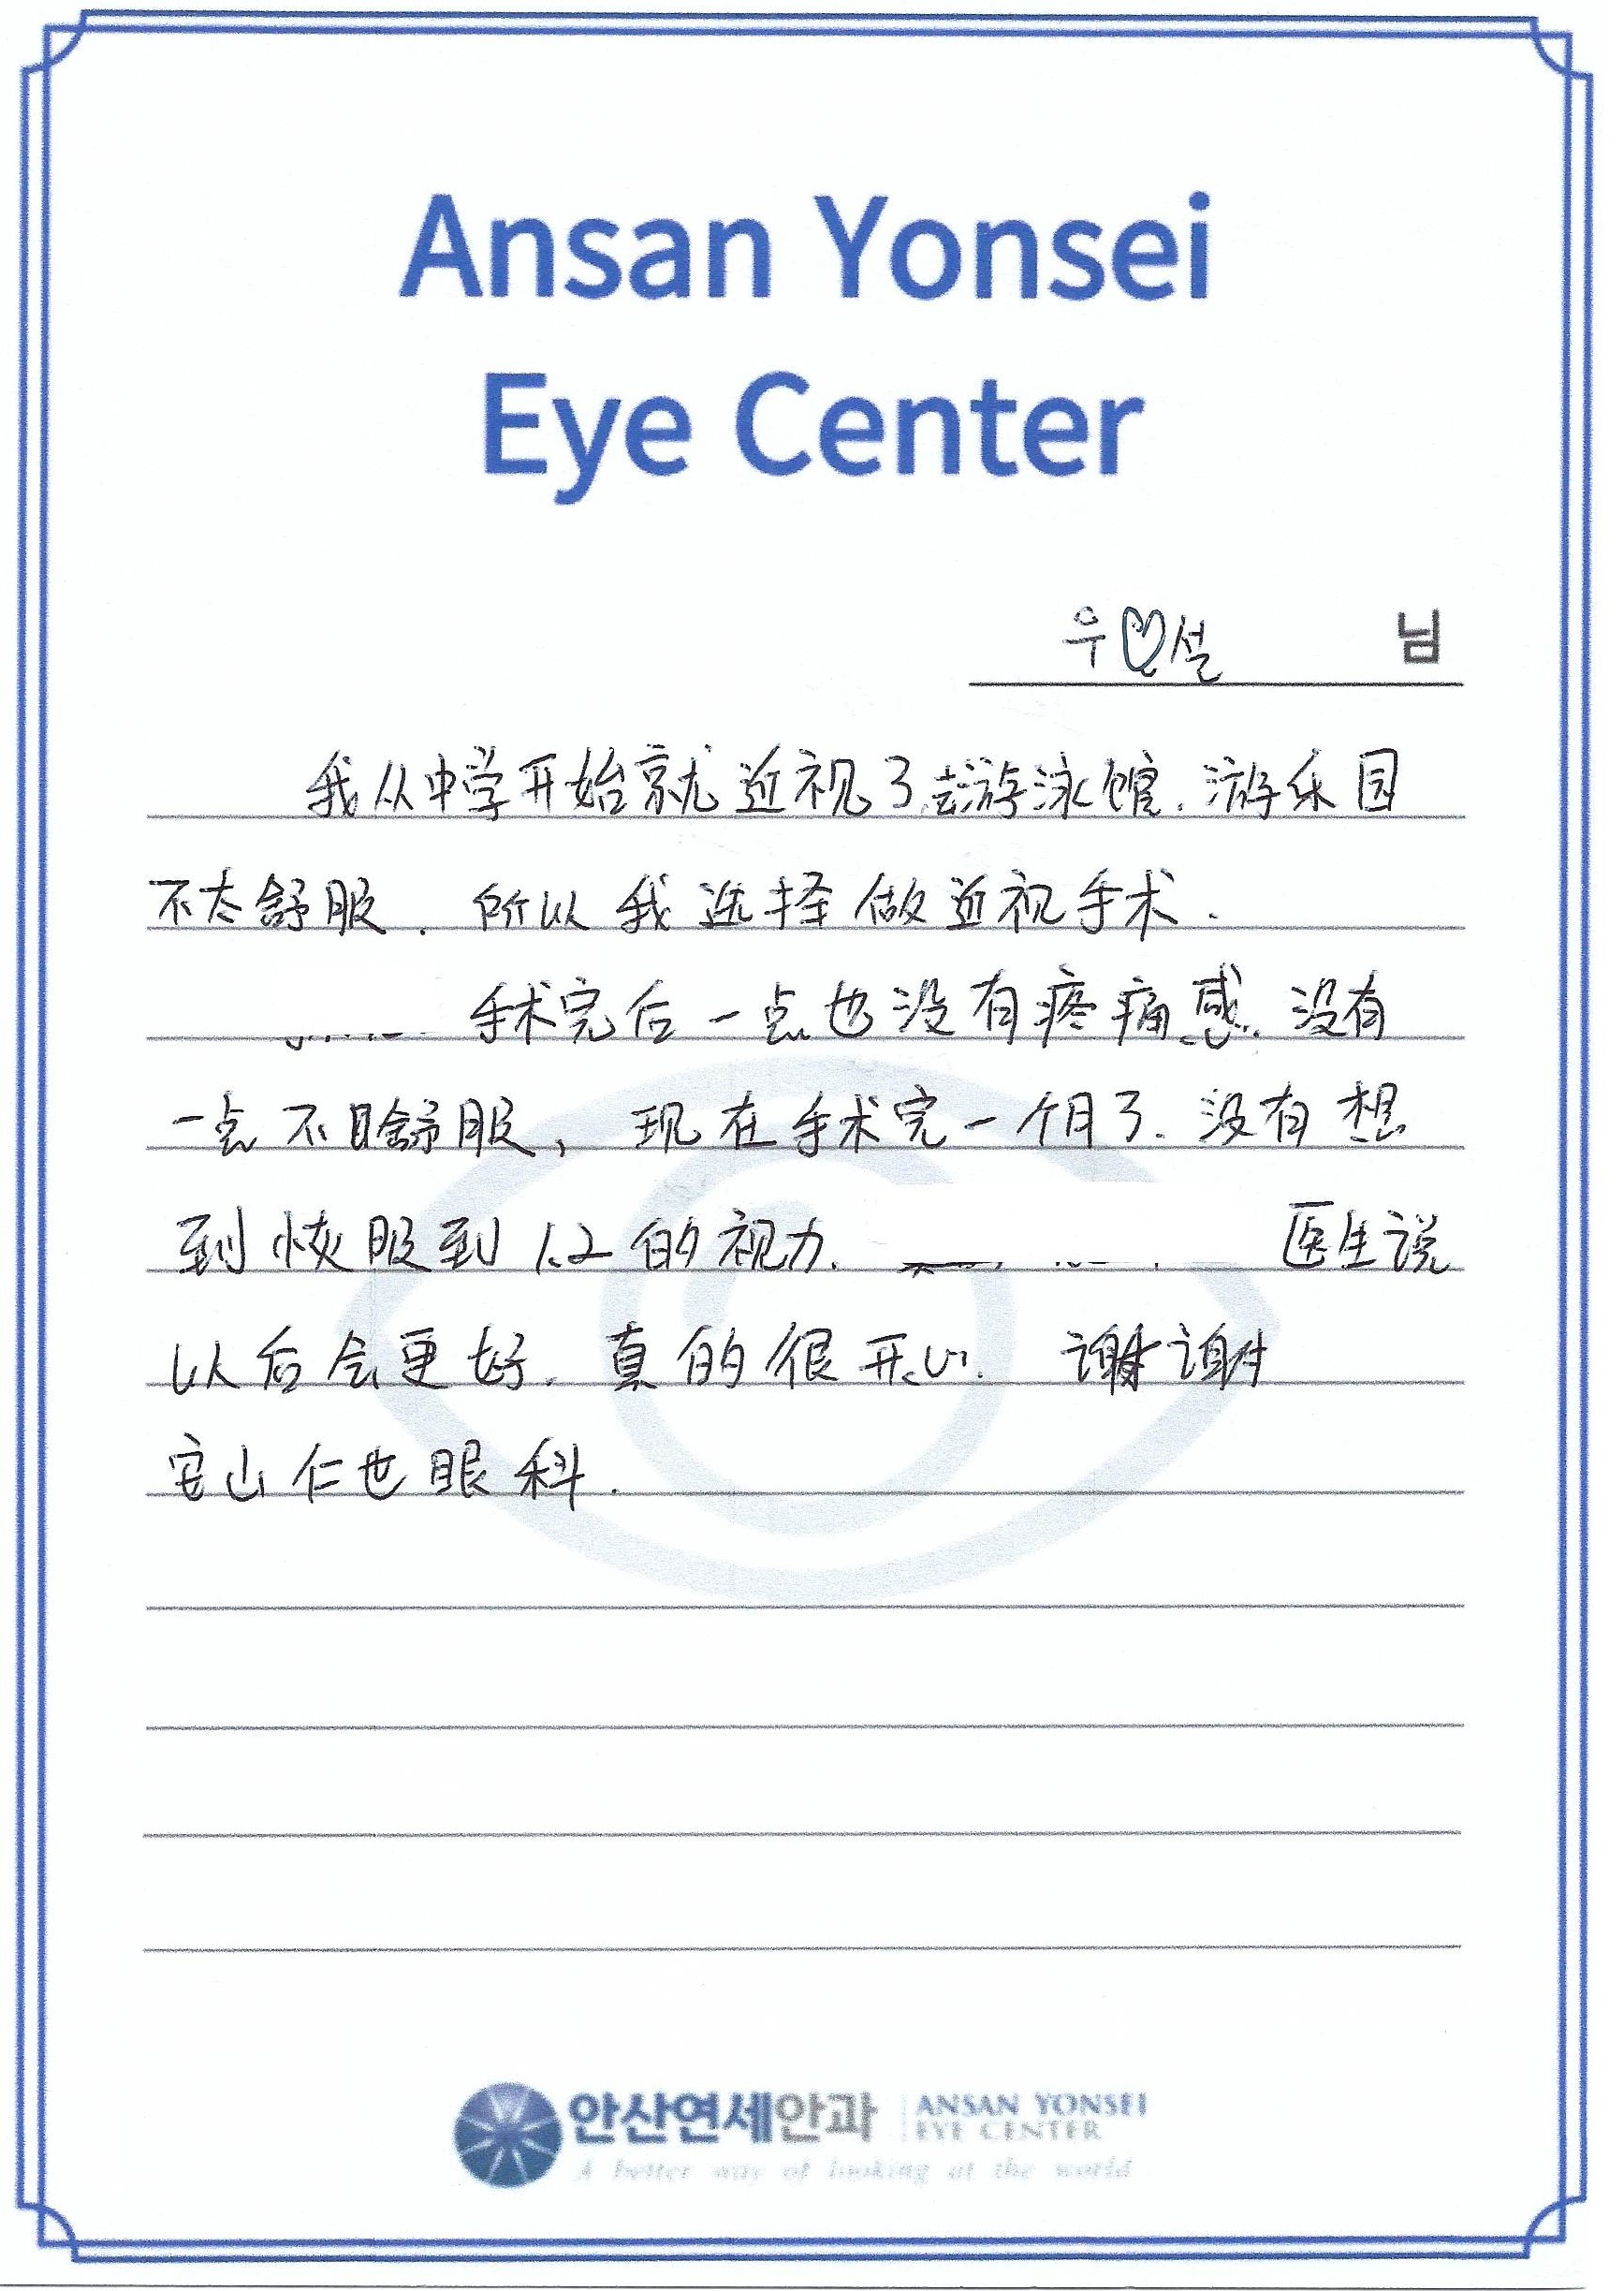 Ansan Yonsei
Eye Center
우♡설 님
我从中学开始就近视了,去游泳馆.游乐园
不太舒服.所以我选择做近视手术.
手术完后一点也没有疼痛感.没有
一点不舒服,现在手术完一个月了.没有想
到恢服到1.2的视力. 医生说
以后会更好.真的很开心.谢谢
安山仁世眼科.
안산연세안과 ANSAN YONSEI
EYE CENTER
A better way of looking at the world